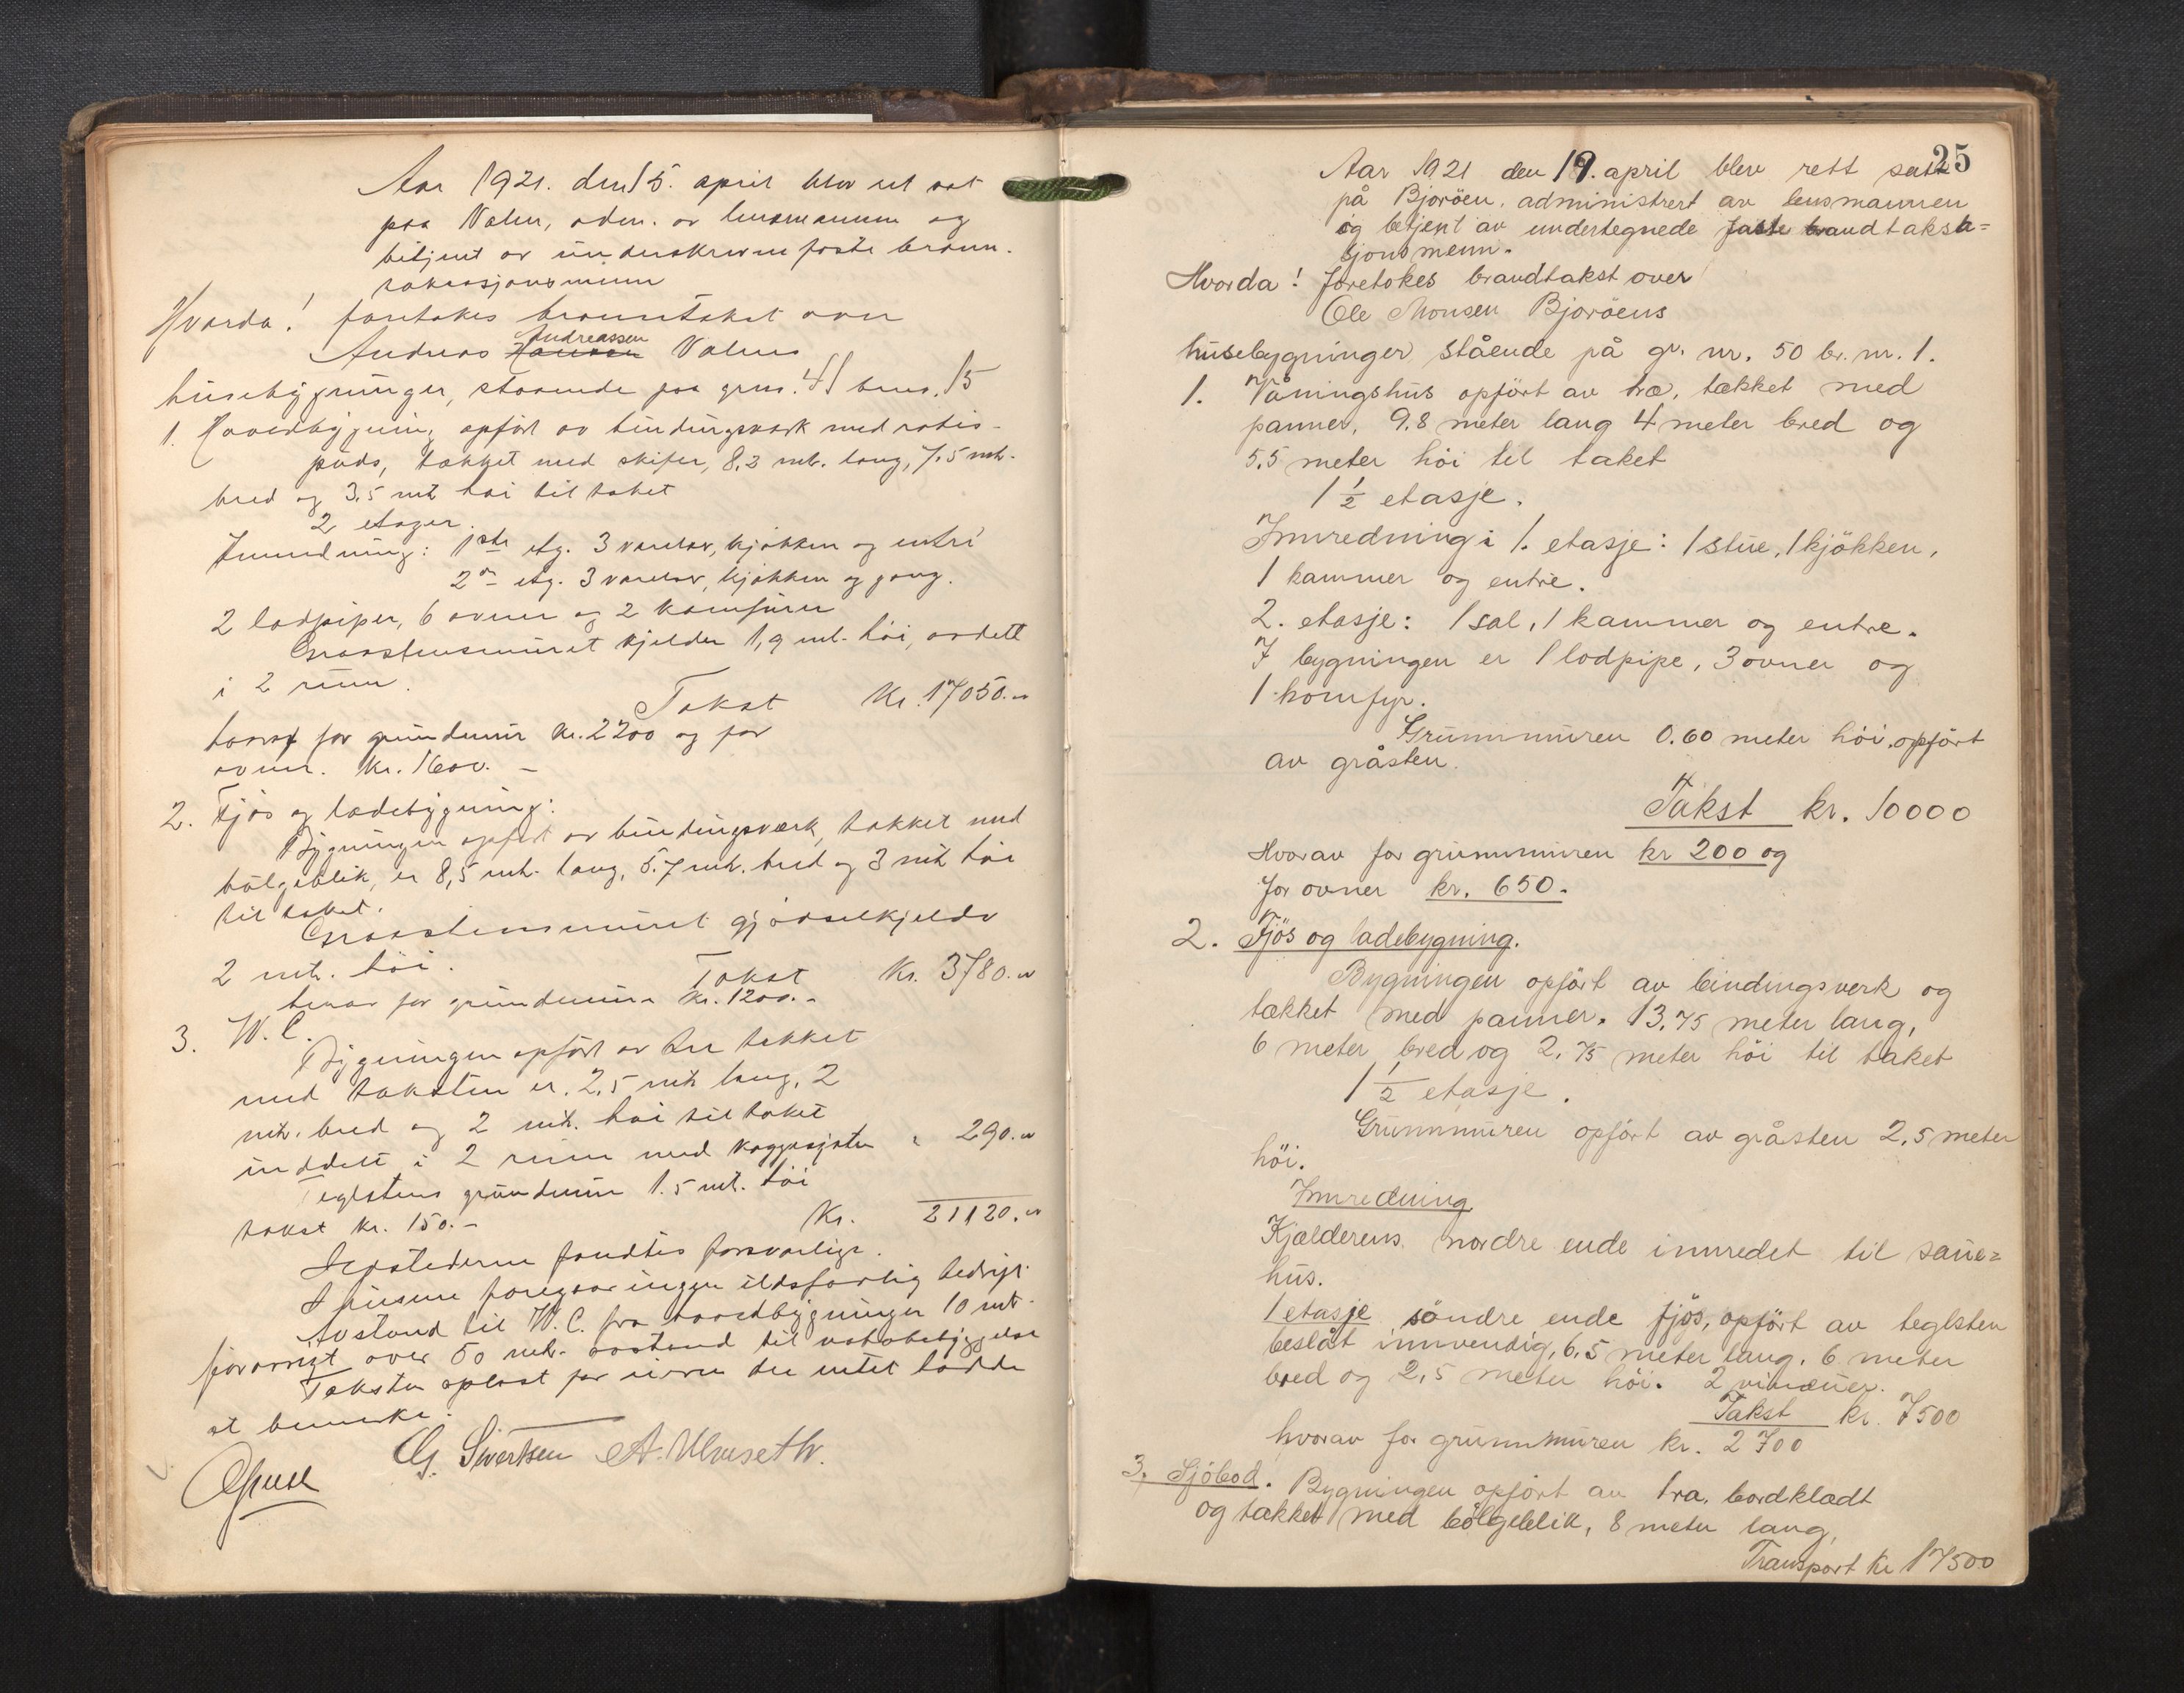 Aar 1921. den 15. april blev ret sat
paa Valen, adm. av lensmannen og
betjent av underskrevne faste brann-
taksasjonsmenn
Hvorda! foretokes branntakst over
Andreassen
Andreas Hansen Valens
husebygninger, staaende paa grnr. 41 brnr. 15
1. Hovedbygning opført av bindingsverk med rabis-
puds, tækket med skifer, 8.2 mtr. lang, 7.5 mtr.
bred og 3.5 mtr høi til taket
2 etager.
Innredning: 1ste etg. 3 værelser, kjøkken og entre
2den etg. 3 værelser, kjøkken og gang.
2 lodpiper, 6 ovner og 2 komfürer
Graastensmüret kjelder 1,9 mtr. høi, avdelt
i 2 rüm.
Takst Kr. 17050.00
hvorav for gründmür kr. 2200 og for
ovner. kr. 1600. –
2. Fjøs og ladebygning:
Bygningen opført av bindingsverk, tækket med
bølgeblik, er 8,5 mtr. lang, 5.7 mtr. bred og 3 mtr høi
til taket.
Graastensmüret gjødselkjelder
2 mtr. høi.
Takst Kr. 3780.00
herav for gründmür kr. 1200. –
3. W. C.
Bygningen opført av tre tækket
med taksten er. 2,5 mtr lang, 2
mtr. bred og 2 mtr. høi til taket
inddelt i 2 rüm med " 290.00
Teglstens gründmür 1.5 mtr. høi
takst kr. 150. –
Kr. 21120.00
Ildstederne fandtes forsvarlige.
I husene foregaar ingen ildsfarlig bedrift.
Avstand til W. C. fra hovedbygningen 10 mtr.
forøvrigt over 50 mtr. avstand til nabobebyggelse
Taksten oplæst for eieren der intet hadde
at bemerke.
G. Sivertsen A. Ulveseth.
Aar 1921 den 19. april blev rett satt 25
på Bjoröen, administrert av lensmannen
og betjent av undertegnede faste brandtaksa=
sjonsmenn.
Hvorda! foretokes brandtakst over
Ole Monsen Bjoröens
husebygninger stående på gr. nr. 50 br. nr. 1.
1. Våningshüs opfört av træ, tækket med
panner, 9.8 meter lang 4 meter bred og
5.5 meter höi til taket
1 1/2 etasje.
Innredning i 1. etasje: 1 stüe, 1 kjökken,
1 kammer og entre.
2. etasje: 1 sal, 1 kammer og entre.
I bygningen er 1 lodpipe, 3 ovner og
1 komfyr.
Grünnmüren 0.60 meter höi, opfört
av gråsten.
Takst kr. 10000
Hvorav for grünnmüren kr 200 og
for ovner kr. 650.
2. Fjös og ladebygning.
Bygningen opfört av bindingsverk og
tækket med panner. 13,75 meter lang,
6 meter bred og 2,75 meter höi til taket
1 1/2 etasje.
Grünnmüren opfört av gråsten 2,5 meter
höi.
Innredning
Kjælderens nordre ende innredet til saüe=
hüs.
1 etasje söndre ende fjös, opfört av teglsten
beslåt innvendig, 6,5 meter lang. 6 meter
bred og 2,5 meter höi. 2 vindüer.
Takst kr. 7500
hvorav for grünnmüren kr. 2700
3. Sjöbod. Bygningen opfört av træ. bordklædt
og tækket med bölgeblik, 8 meter lang,
Transport kr 17500